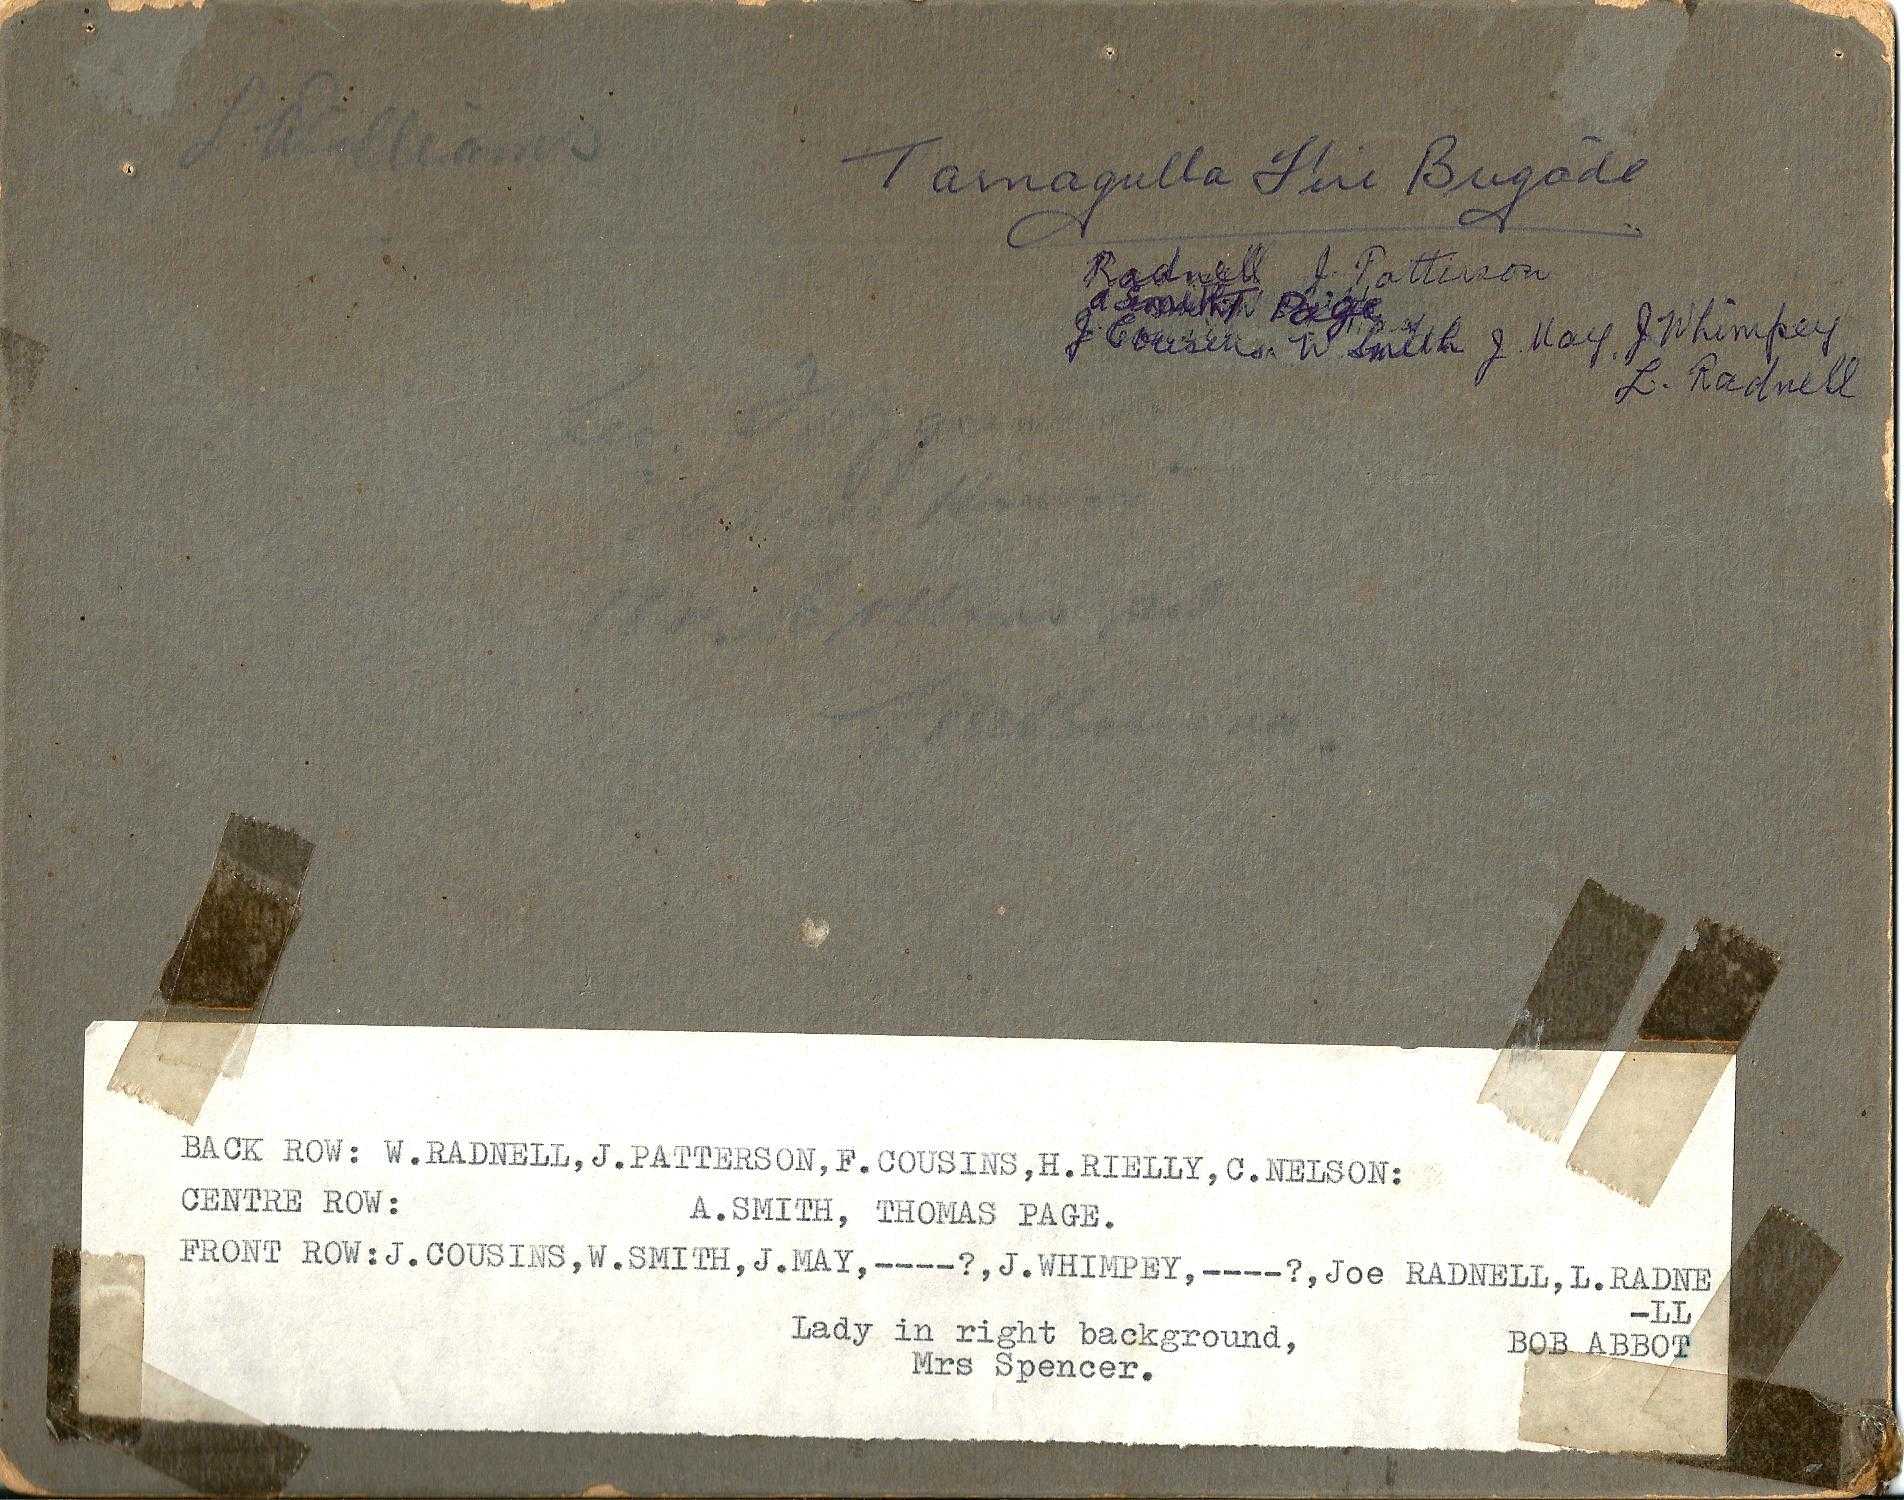 L. Williams
Tarnagulla Fire Brigade
Radnell J. Patterson
A Smith T Page
J. Cousens. W Smith J May. J Whimpey
L. Radnell
BACK ROW: W.RADNELL,J.PATTERSON,F.COUSINS,H.RIELLY,C.NELSON:
CENTRE ROW: A.SMITH, THOMAS PAGE.
FRONT ROW:J.COUSINS,W.SMITH,J.MAY,----?,J.WHIMPEY,----?,Joe RADNELL,L.RADNE
-LL
Lady in right background, BOB ABBOT
Mrs Spencer.